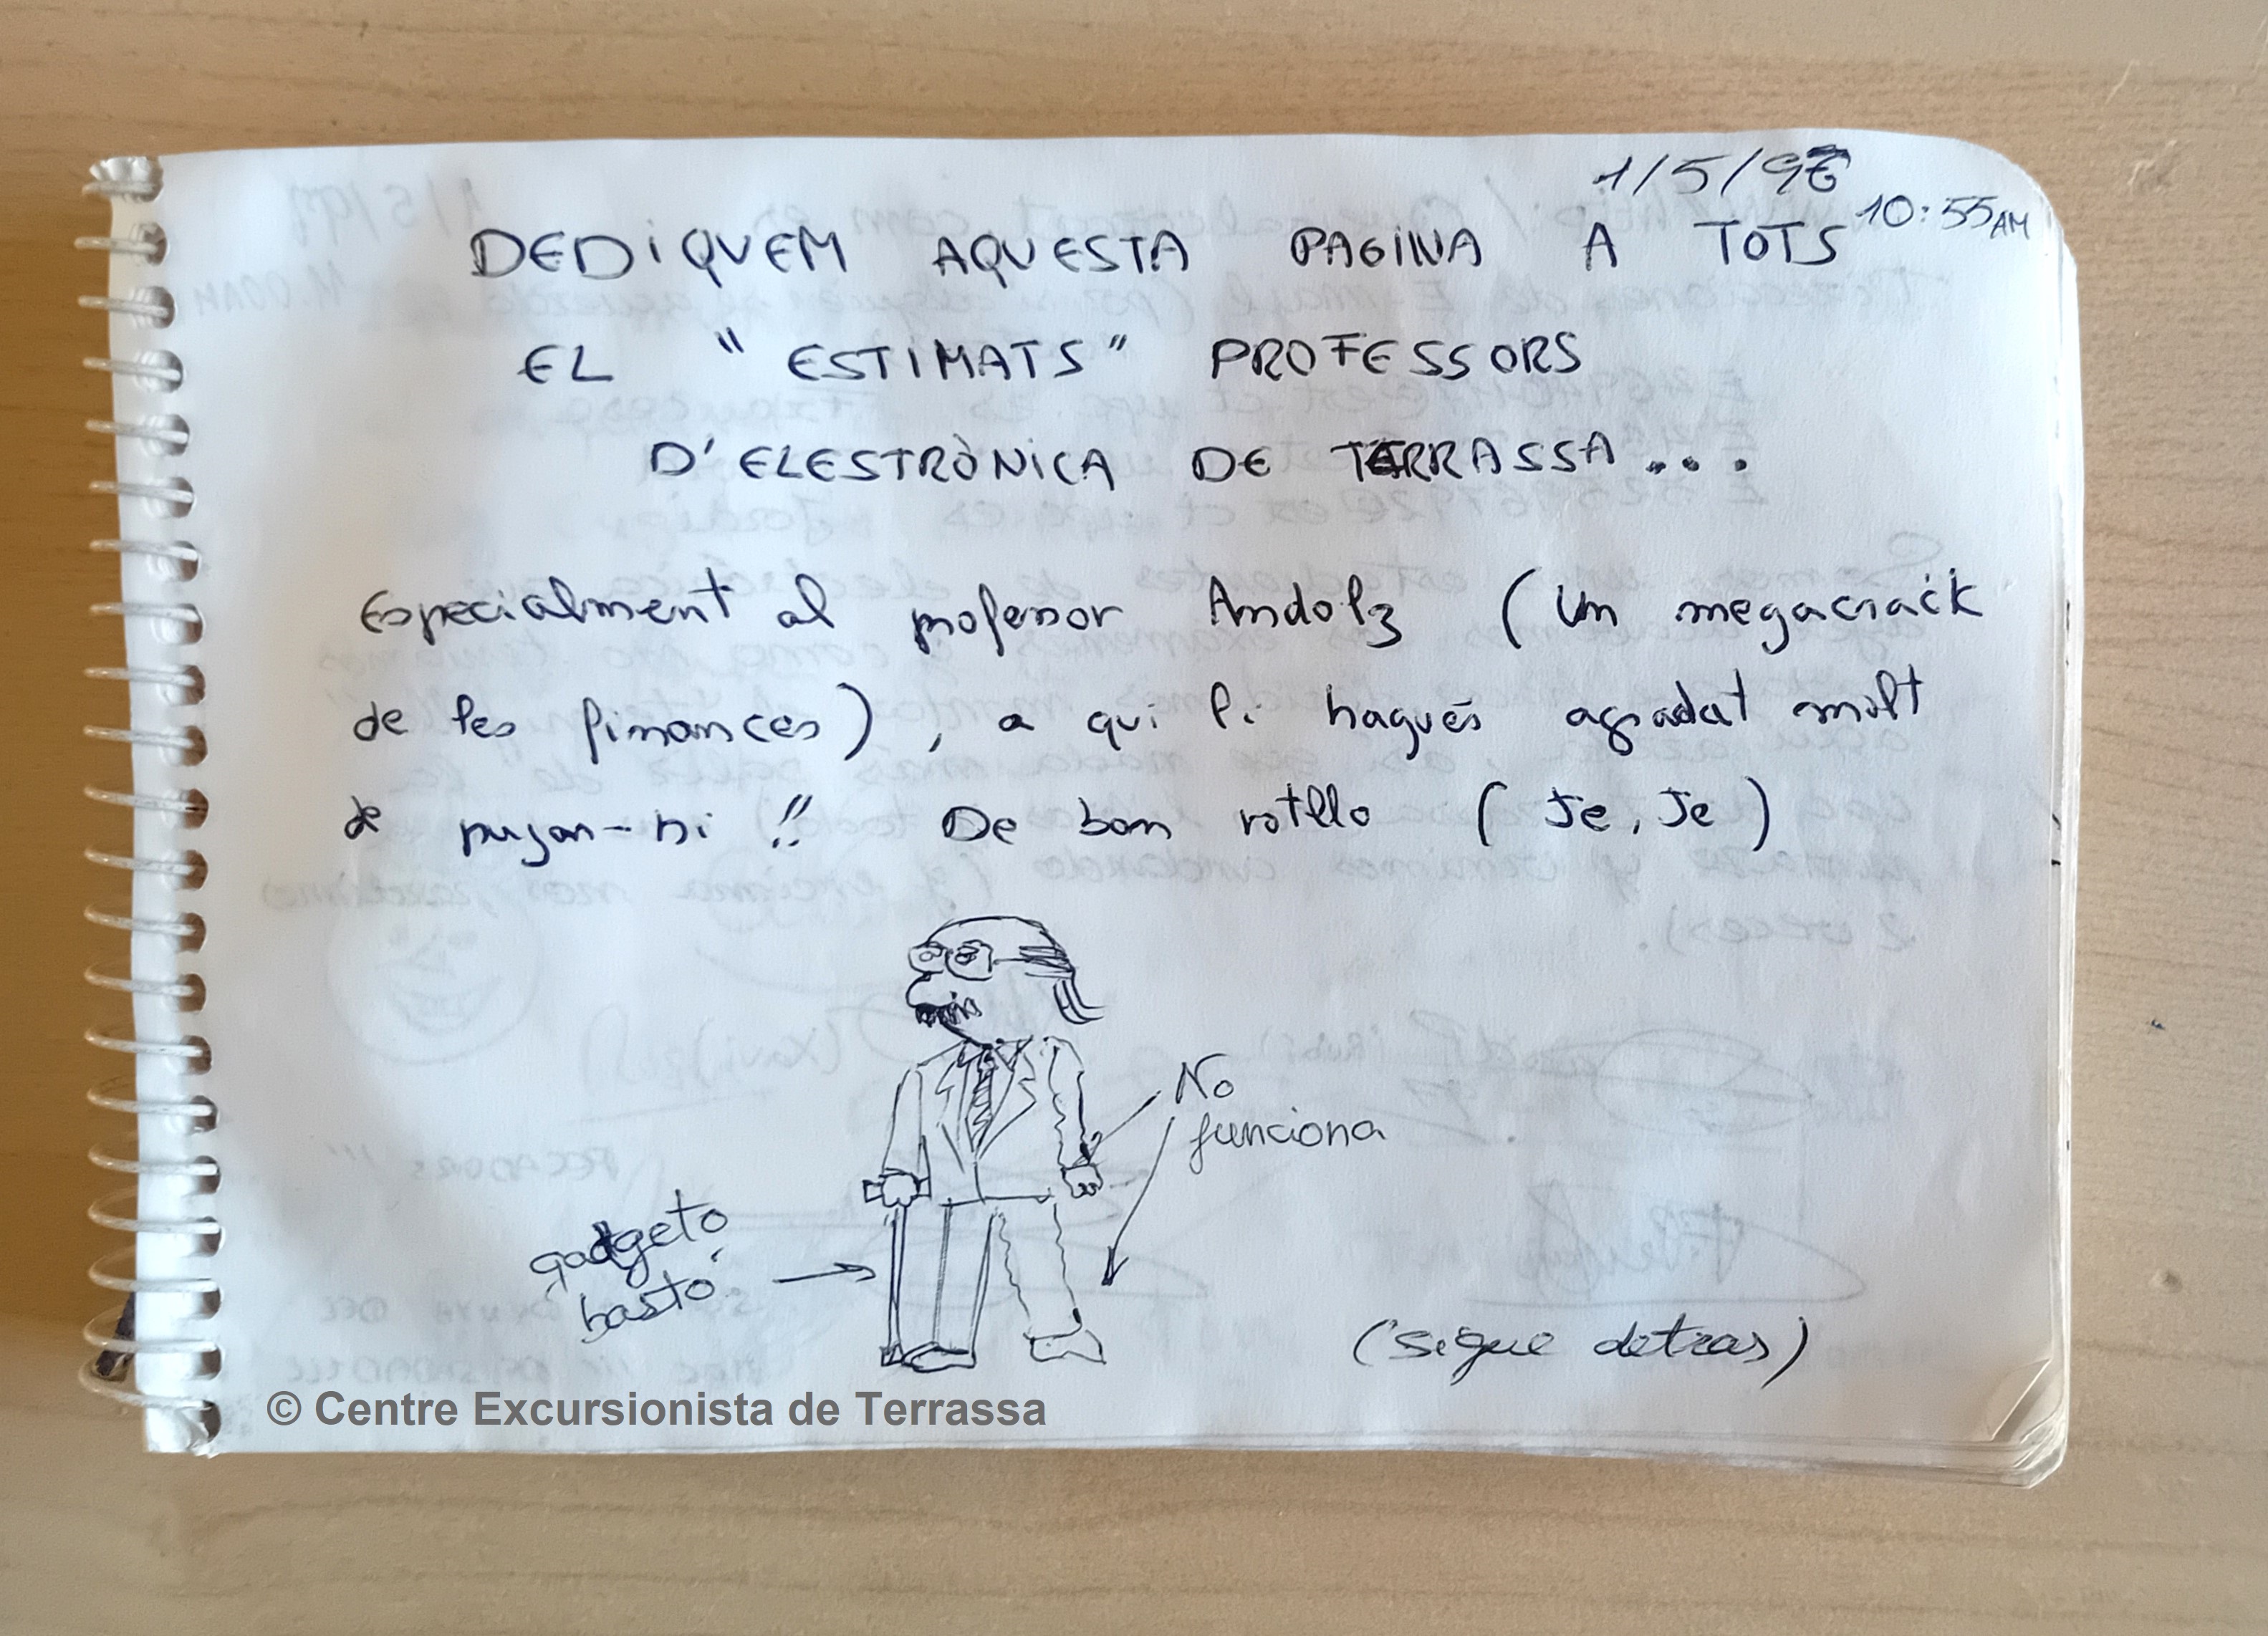 1/5/97
10:55AM
DEDIQUEM AQUESTA PAGINA A TOTS
EL "ESTIMATS" PROFESSORS
D'ELESTRÒNICA DE TERRASSA...
Especialment al professor Andolz (Un megacrack
de les finances), a qui li hagués agradat molt
de pujar-hi!! De bon rotllo (Je, Je)
No
funciona
gadgeto
bastó
(sigue detras)
© Centre Excursionista de Terrassa